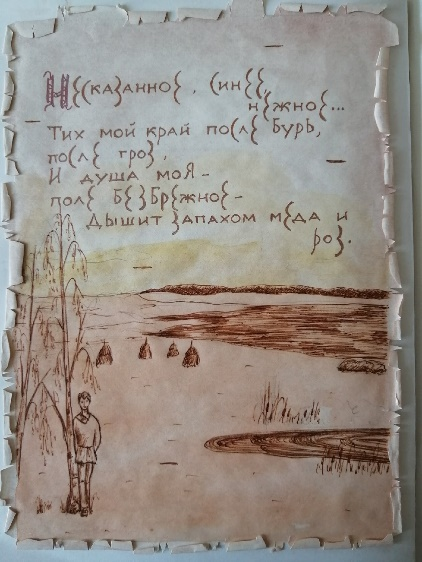 Несказанное, синее,
нежное...
Тих мой край после бурь,
после гроз,
И душа моя -
поле безбрежное -
Дышит запахом меда и
роз.